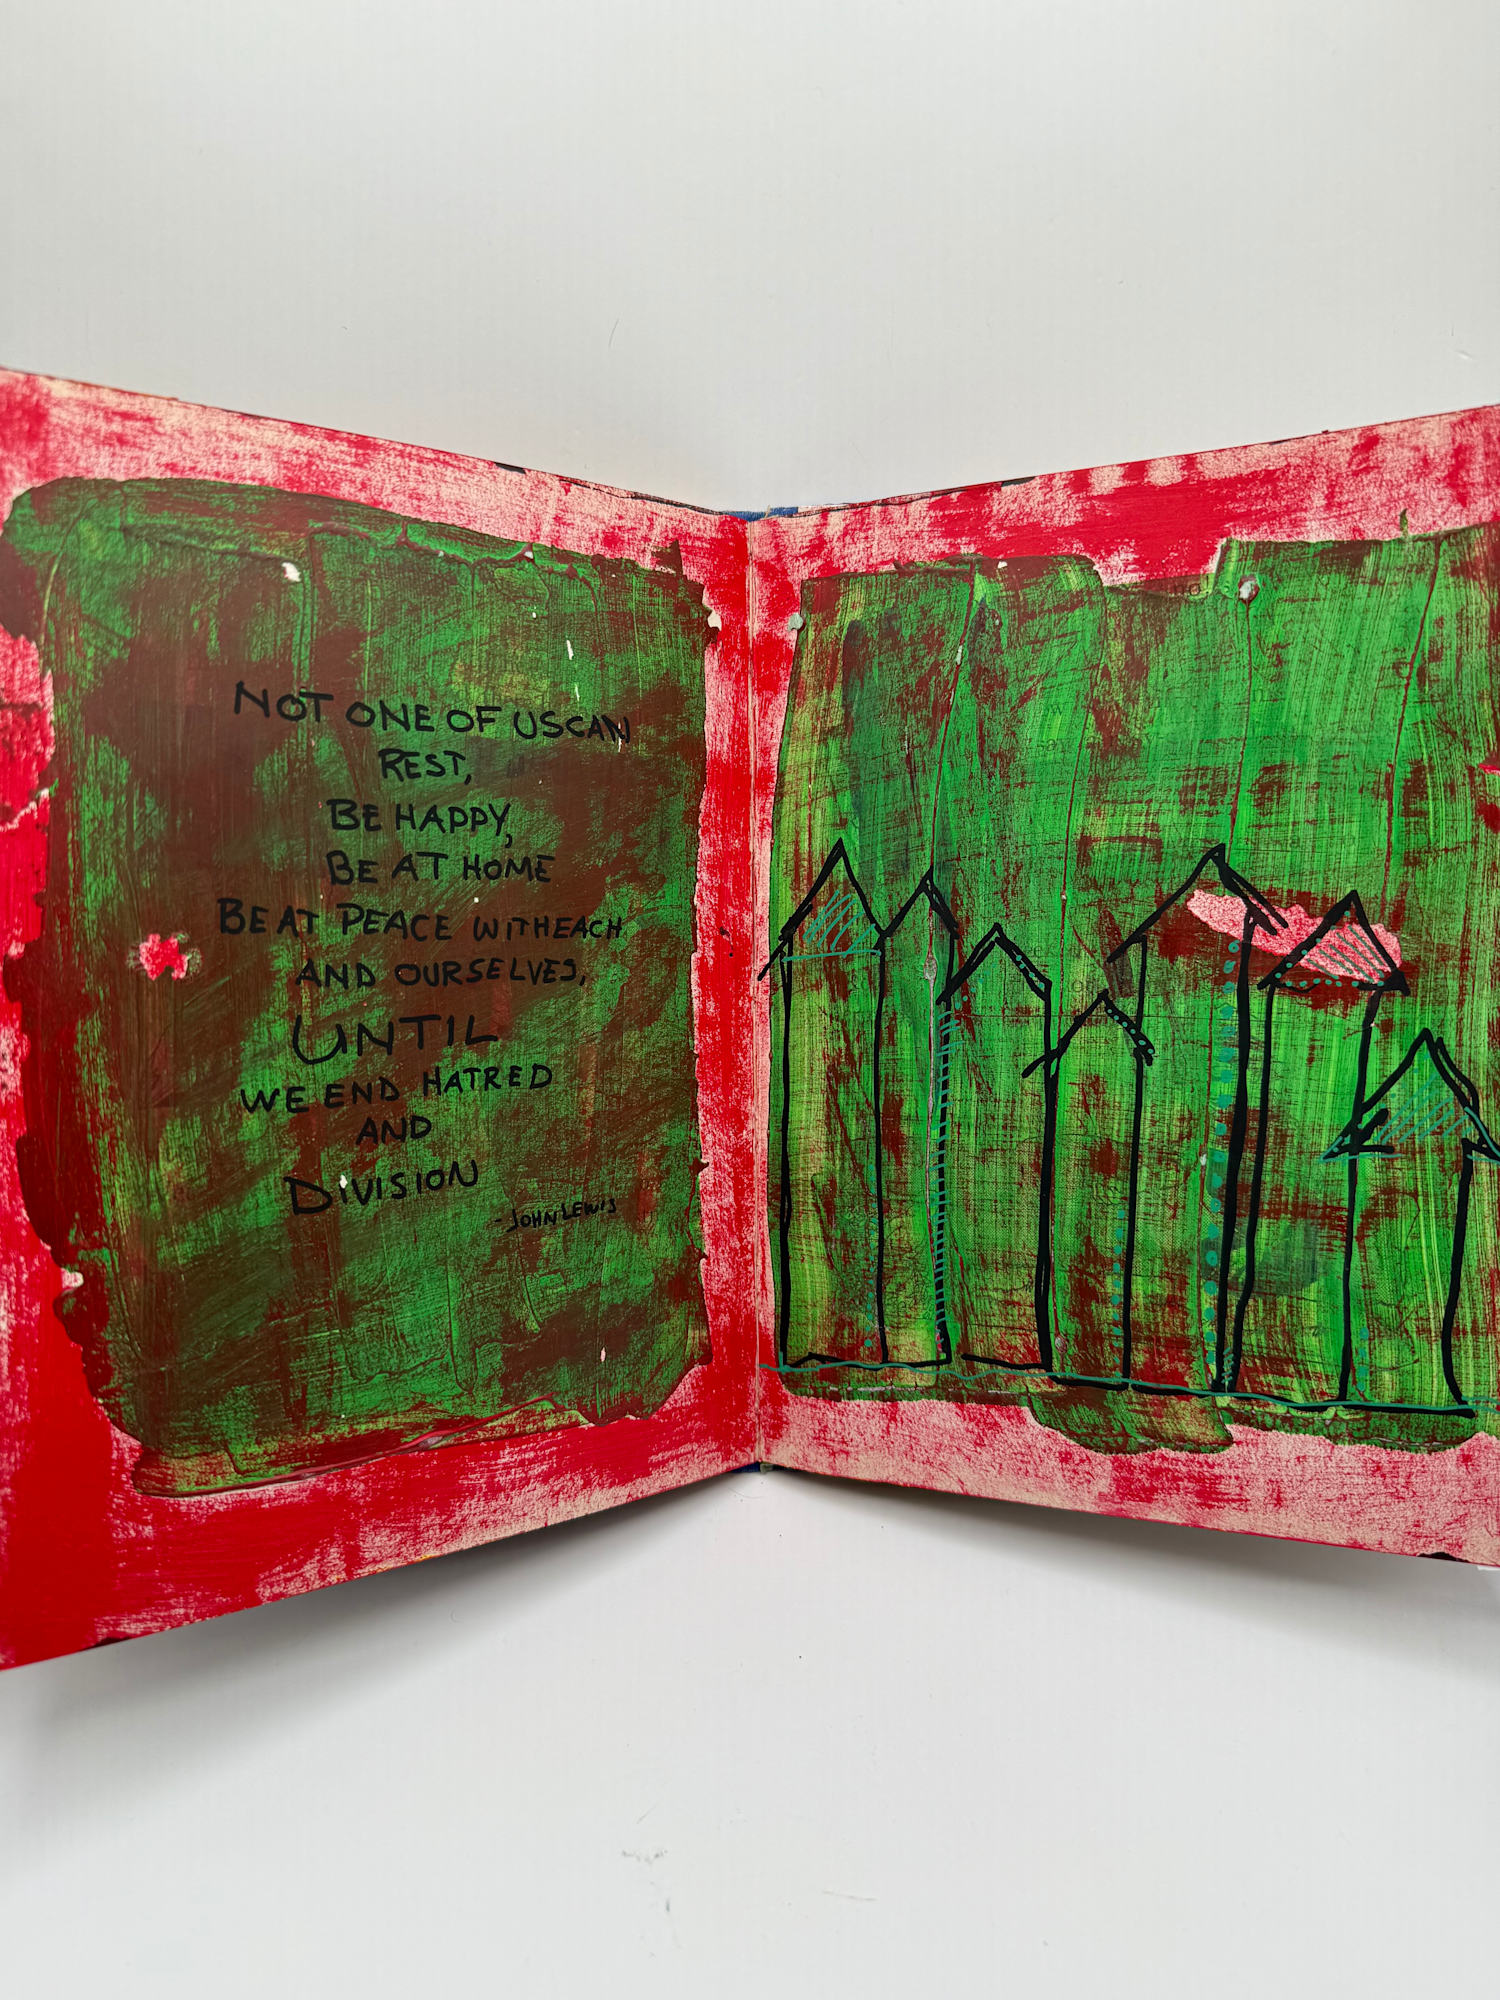 NOT ONE OF US CAN
REST,
BE HAPPY,
BE AT HOME
BE AT PEACE WITH EACH
AND OURSELVES,
UNTIL
WE END HATRED
AND
DIVISION
- JOHN LEWIS